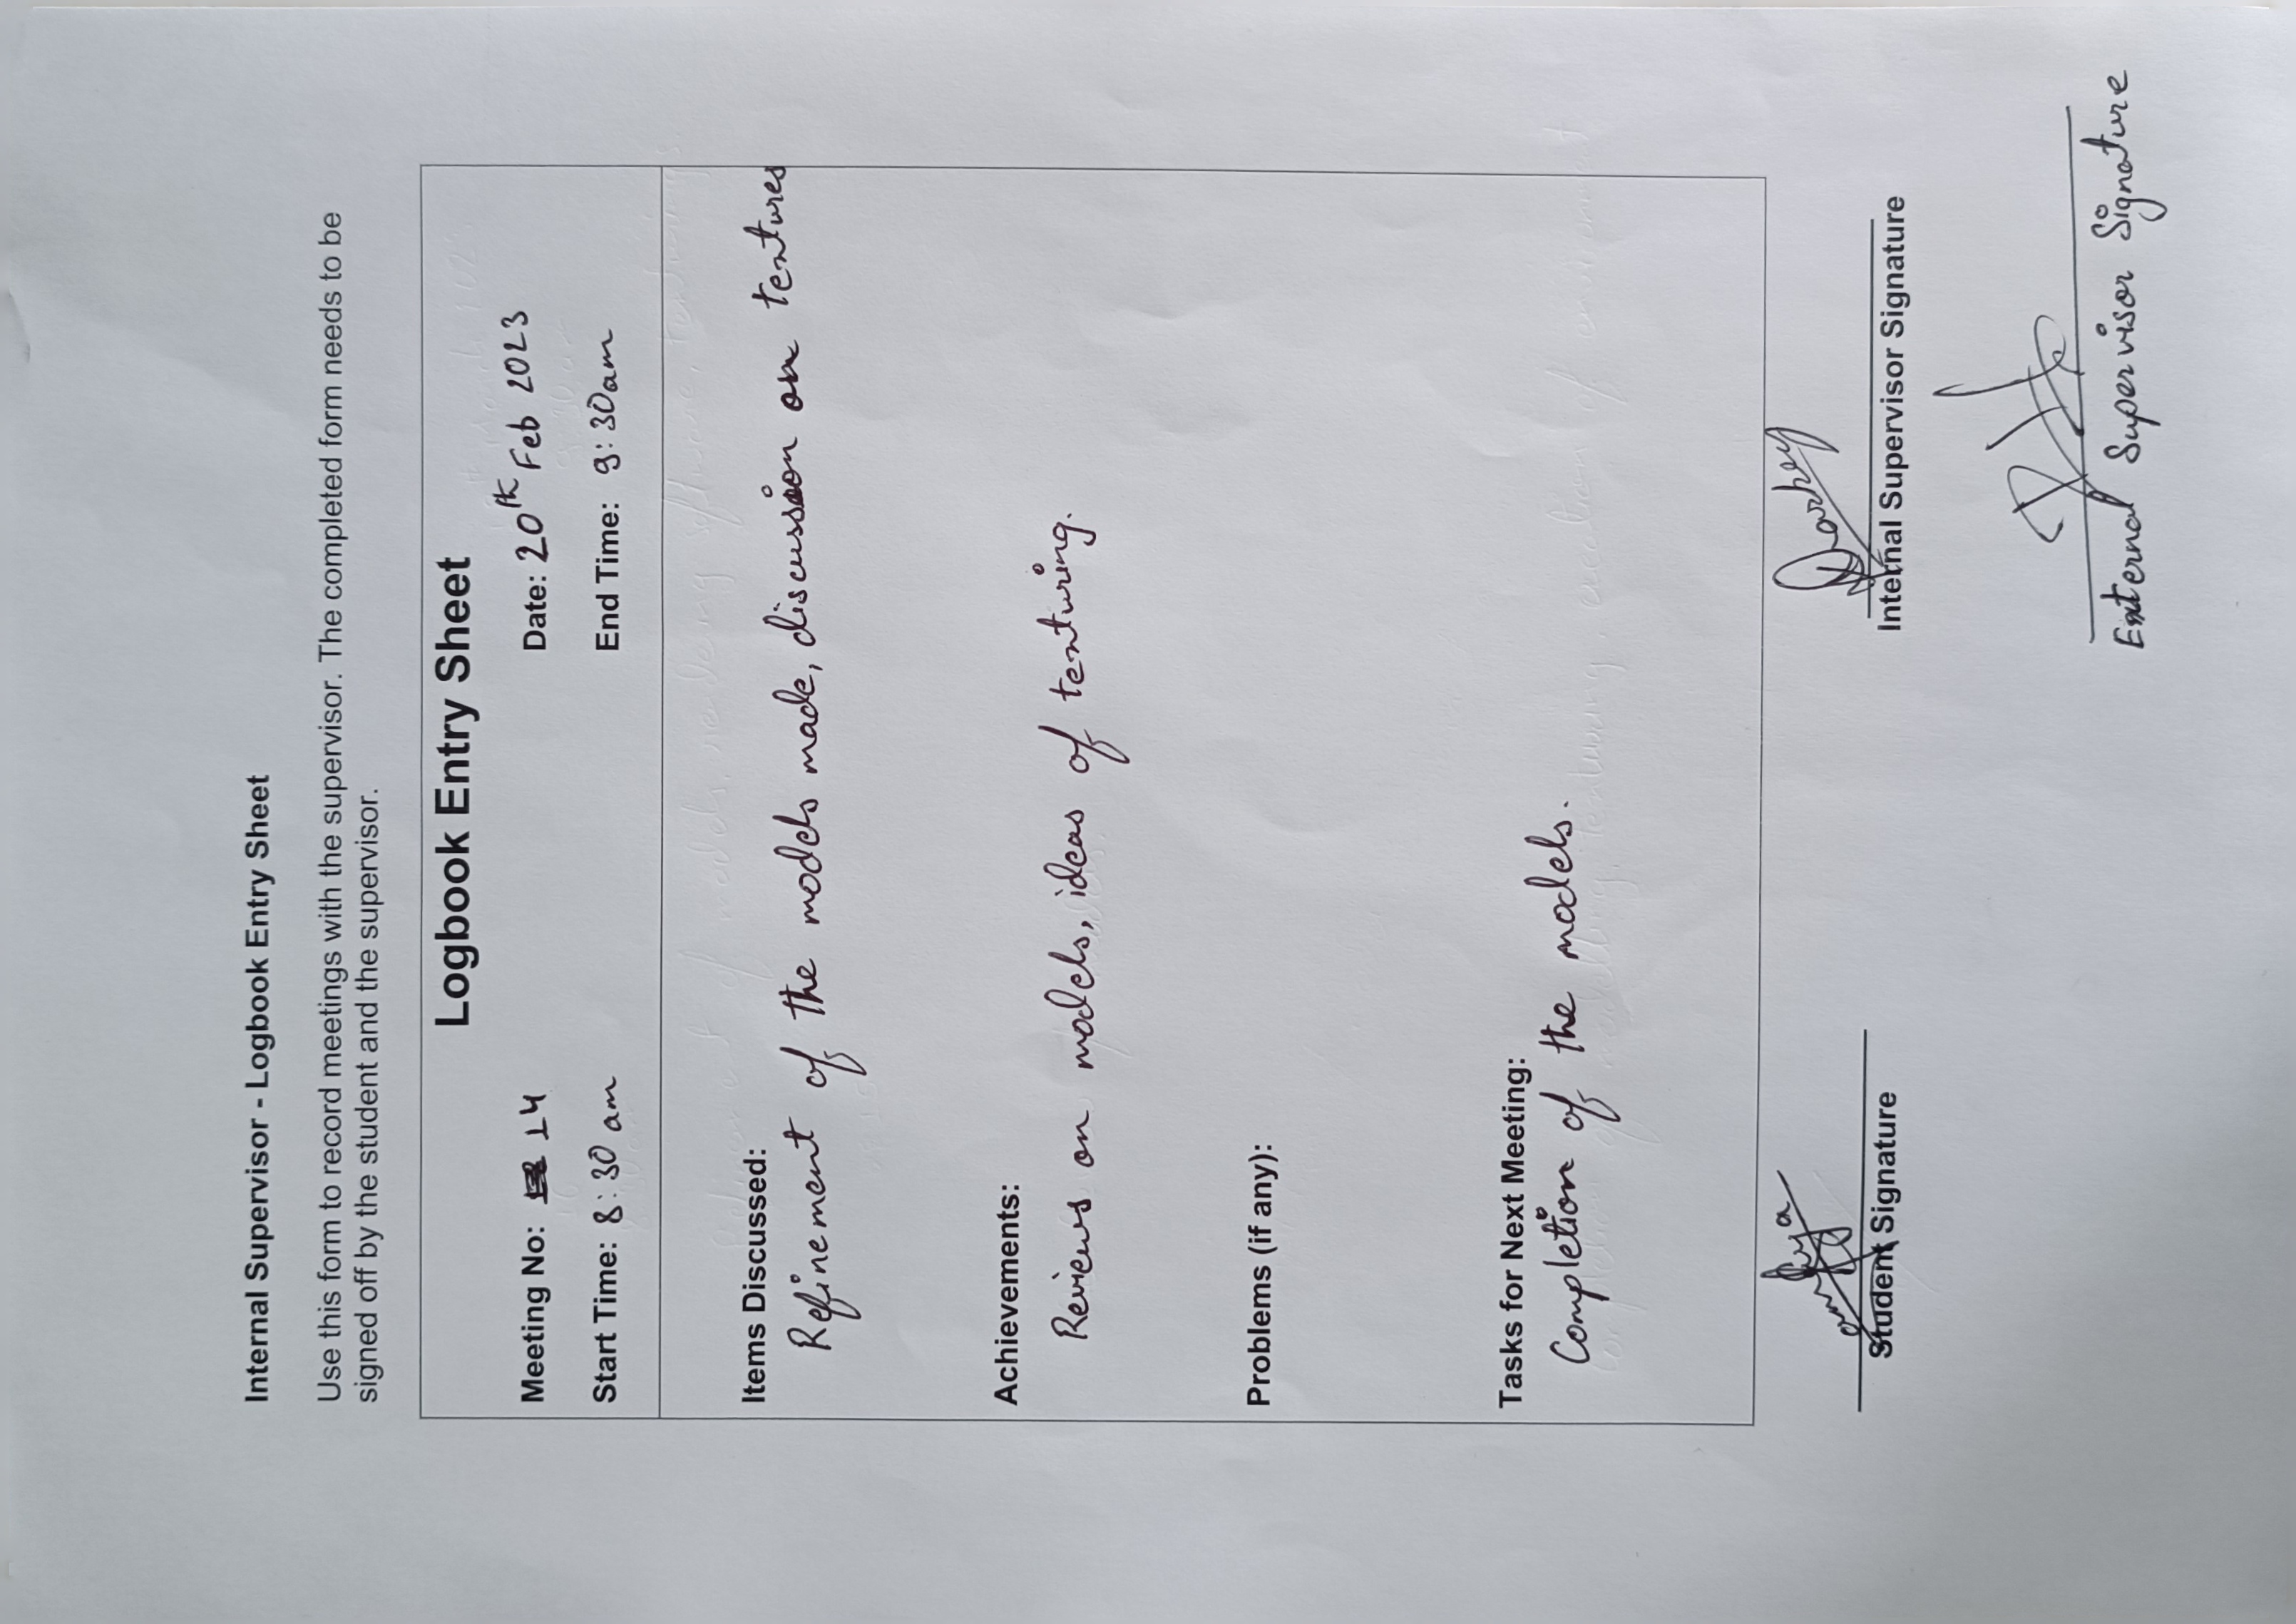 Internal Supervisor - Logbook Entry Sheet
Use this form to record meetings with the supervisor. The completed form needs to be
signed off by the student and the supervisor.
Logbook Entry Sheet
Meeting No: 14 Date: 20th Feb 2023
Start Time: 8:30 am End Time: 9:30am
Items Discussed:
Refinement of the models made, discussion on textures
Achievements:
Reviews on models, ideas of texturing.
Problems (if any):
Tasks for Next Meeting:
Completion of the models.
Student Signature Internal Supervisor Signature
External Supervisor Signature